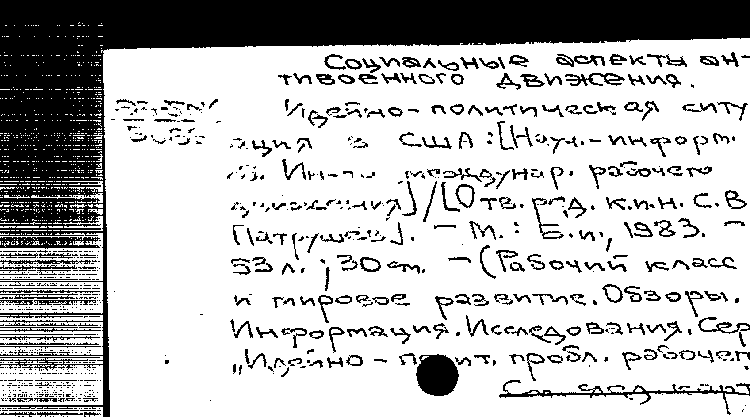 Социальные аспекты ан-
тивоенного движения.
Идейно-политическая ситу
ация в США:[Науч.-информ.
Ин-т междунар. рабочего
движения]/[Отв. ред. к.п.н. С.В
Патрушев]. - М.: Б.и., 1983. -
53 л.; 30 см. - (Рабочий класс
и мировое развитие. Обзоры.
Информация. Исследования. Сер
"Идейно- пробл. рабочег
См. след. карт